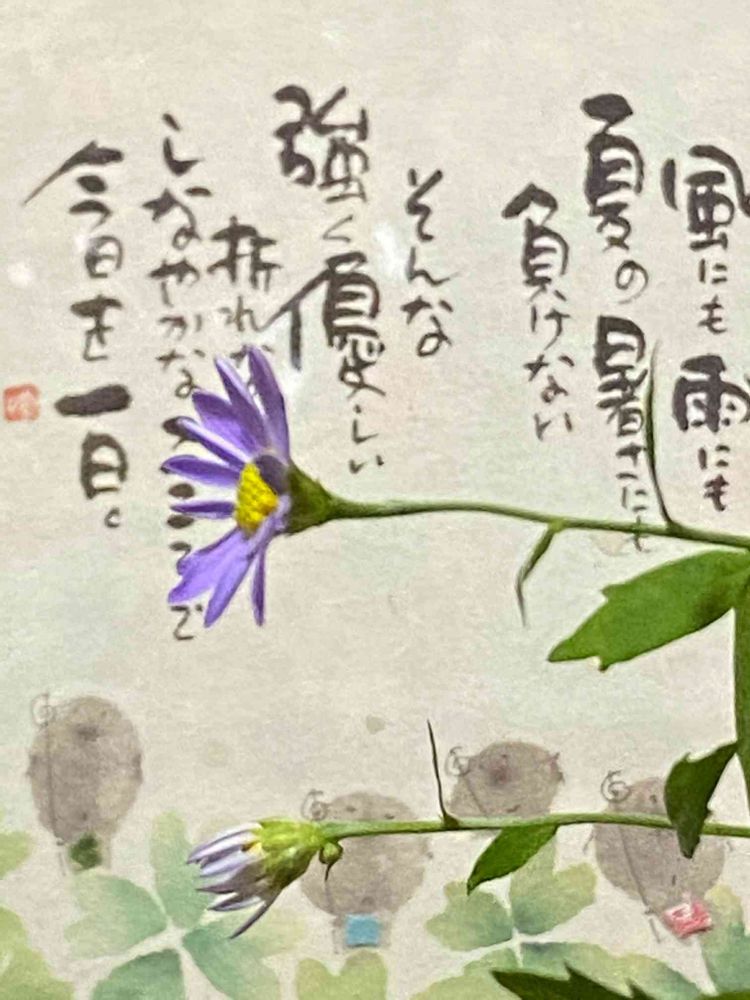 風にも雨にも
夏の暑さにも
負けない
そんな
強く優しい
折れ
しなやかな で
今日を一日。